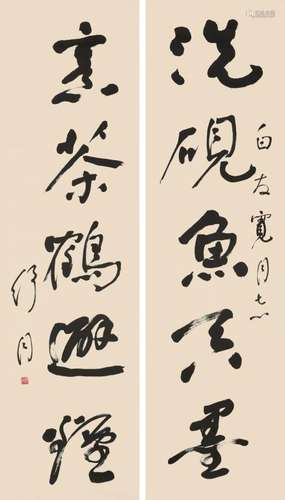 洗硯魚吞墨
白友寬同志
烹茶鶴避煙
舒同